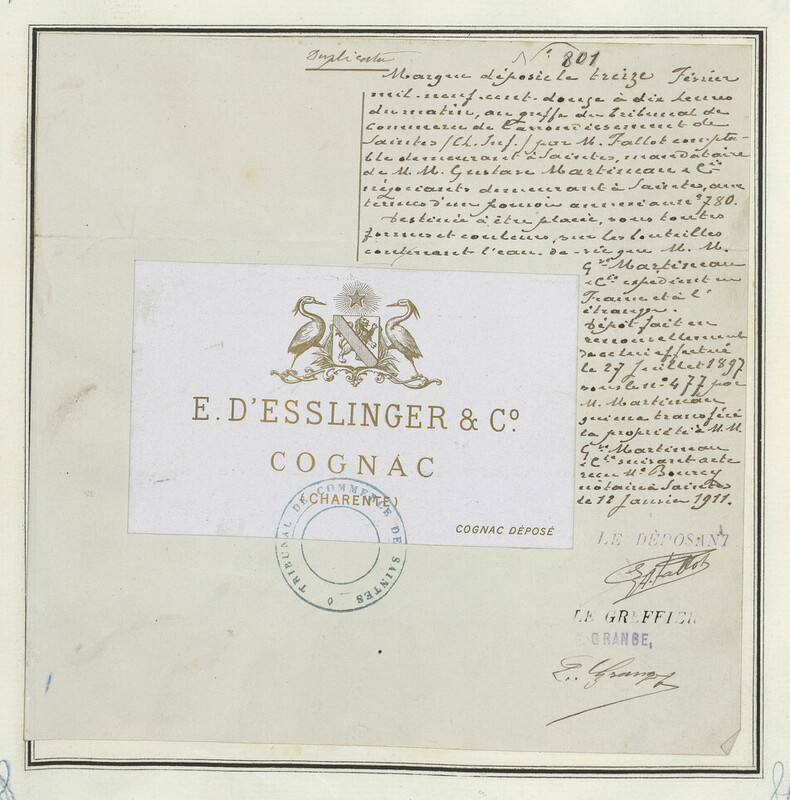 Duplicata
N° 801
Marque déposée le treize Février
mil-neuf-cent-douze à dix heures
du matin, au greffe du Tribunal de
Commerce de l'arrondissement de
Saintes (Ch. Inf.) par M. Fallot compta-
ble demeurant à Saintes, mandataire
de M. M. Gustave Martineau & Cie
négociants demeurant à Saintes, aux
termes d'un pouvoir annexé au n° 780.
Destinée à être placée, sous toutes
formes et couleurs, sur les bouteilles
contenant l'eau-de-vie que M. M.
Gve Martineau
& Cie expédient en
France et à l'
étranger.
Dépôt fait en
renouvellement
de celui effectué
le 27 Juillet 1897
sous le n° 477 par
M. Martineau
qui en a transféré
la propriété à M. M.
Gve Martineau
& Cie suivant acte
reçu Me Bourcy
notaire à Saintes
le 12 Janvier 1911.
E. D'ESSLINGER & Co.
COGNAC
(CHARENTE)
COGNAC DÉPOSÉ
TRIBUNAL DE COMMERCE DE SAINTES
LE DÉPOSANT
Fallot
LE GREFFIER
E. GRANGE,
E. Grange